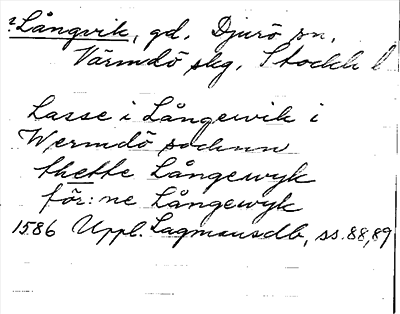 Långvik, gd. Djurö sn,
Värmdö skg, Stockh l
Lasse i Långewik i
Wermdö sochnn
thette Långewyk
för:ne Långewyk
1586 Uppl. Lagmansdb, ss. 88,89